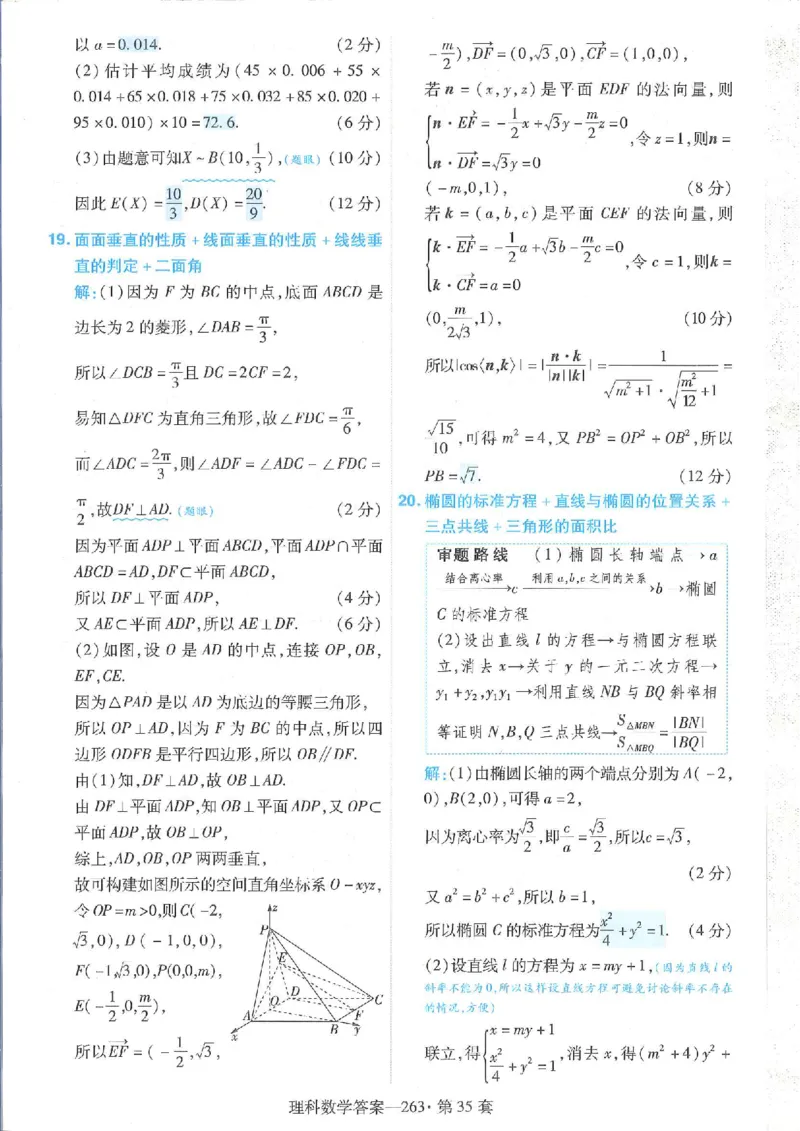 以 a=0.014. (2分)
(2)估计平均成绩为(45 × 0.006 + 55 ×
0.014+65×0.018+75×0.032+85×0.020+
95×0.010)×10=72.6. (6分)
(3)由题意可知X~B(10,1/3),(题眼) (10分)
因此 E(X) = 10/3, D(X) = 20/9. (12分)
19. 面面垂直的性质+线面垂直的性质+线线垂
直的判定+二面角
解:(1)因为 F 为 BC 的中点,底面 ABCD 是
边长为2的菱形,∠DAB=π/3,
所以∠DCB=π/3且 DC=2CF=2,
易知△DFC 为直角三角形,故∠FDC=π/6,
而∠ADC=2π/3,则∠ADF = ∠ADC - ∠FDC =
π/2,故DF⊥AD.(题眼) (2分)
因为平面 ADP⊥平面 ABCD,平面 ADP∩平面
ABCD=AD,DF⊂平面 ABCD,
所以 DF⊥平面 ADP, (4分)
又 AE⊂平面 ADP,所以 AE⊥DF. (6分)
(2)如图,设 O 是 AD 的中点,连接 OP,OB,
EF,CE.
因为△PAD 是以 AD 为底边的等腰三角形,
所以 OP⊥AD,因为 F 为 BC 的中点,所以四
边形 ODFB 是平行四边形,所以 OB∥DF.
由(1)知,DF⊥AD,故 OB⊥AD.
由 DF⊥平面 ADP,知 OB⊥平面 ADP,又 OP⊂
平面 ADP,故 OB⊥OP,
综上,AD,OB,OP 两两垂直,
故可构建如图所示的空间直角坐标系 O-xyz,
令 OP=m>0,则 C(-2,
√3,0),D(-1,0,0),
F(-1,√3,0),P(0,0,m),
E(-1/2,0,m/2),
所以EF→=(-1/2,√3,
z
P
E
D
C
O
A
F
x
B
y
-m/2),DF→=(0,√3,0),CF→=(1,0,0),
若 n = (x,y,z) 是平面 EDF 的法向量,则
{n·EF→=-1/2x+√3y-m/2z=0
,令 z=1,则n=
n·DF→=√3y=0
(-m,0,1), (8分)
若 k = (a,b,c) 是平面 CEF 的法向量,则
{k·EF→=-1/2a+√3b-m/2c=0
,令 c=1,则k=
k·CF→=a=0
(0,m/2√3,1), (10分)
所以|cos⟨n,k⟩|=|n·k/|n||k||=1/(√(m²+1)·√(m²/12+1))=
√15/10,可得 m²=4,又 PB²=OP²+OB²,所以
PB=√7. (12分)
20. 椭圆的标准方程+直线与椭圆的位置关系+
三点共线+三角形的面积比
审题路线 (1)椭圆长轴端点→a
结合离心率→c 利用a,b,c之间的关系→b →椭圆
C的标准方程
(2)设出直线 l 的方程→与椭圆方程联
立,消去 x→关于 y 的一元二次方程→
y₁+y₂,y₁y₁→利用直线 NB 与 BQ 斜率相
等证明 N,B,Q 三点共线→S△MBN/S△MBQ=|BN|/|BQ|
解:(1)由椭圆长轴的两个端点分别为 A(-2,
0),B(2,0),可得 a=2,
因为离心率为√3/2,即c/a=√3/2,所以c=√3,
(2分)
又 a²=b²+c²,所以 b=1,
所以椭圆 C 的标准方程为x²/4+y²=1. (4分)
(2)设直线 l 的方程为 x=my+1,(因为直线l的
斜率不能为0,所以这样设直线方程可避免讨论斜率不存在
的情况,方便)
联立,得{x=my+1
x²/4+y²=1,消去 x,得(m²+4)y²+
理科数学答案—263·第35套